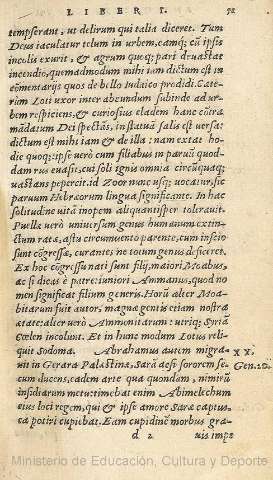 LIBER I. 51
tempserant, ut delirum qui talia diceret. Tum
Deus iaculatur telum in urbem, eamq; cū ipsis
incolis exurit, & agrum quoq; pari dṛuastat
incendio, quemadmodum mihi iam dictum est in
cōmentarijs quos de bello Iudaico prodidi. Cæte
rùm Loti uxor inter abeundum subinde ad ur
bem respiciens, & curiosius eladem hanc cōtra
mādatum Dei spectās, in statuā salis est uersa:
dictum est mihi iam & de illa: nam extat ho
die quoq;: ipse uerò cum filiabus in paruū quod-
dam rus euasit, cui soli ignis omnia circūquaq;
uastans pepercit. id Zoor nunc usq; uocatur, sic
paruum Hebræorum lingua significante. In hac
solitudine uitā inopem aliquantisper tolerauit.
Puellæ uerò uniuersum genus humanum extin-
ctum ratæ, astu circumuento parente, cum inscio
sunt cōgressæ, curantes ne totum genus deficeret.
Ex hoc cōgressu nati sunt filij, maiori Moabus,
ac si dicas è patre: iuniori Ammanus, quod no
men significat filium generis. Horū alter Moa-
bitarum fuit autor, magnæ gentis etiam nostra
ætate: alter uerò Ammonitarum: utriq; Syriā
Cœlen incolunt. Et in hunc modum Lotus reli-
quit Sodoma. Abrahamus autem migra XX.
uit in Gerara Palæstinæ, Sarā acsi sororem se- Gen. 20.
cum ducens, eadem arte qua quondam, nimirū
insidiarum metu: timebat enim Abimelechum
eius loci regem, qui & ipse amore Saræ captus,
ea potiri cupiebat. Eam cupidinē morbus gra-
d 2 uis impe
Ministerio de Educación, Cultura y Deporte